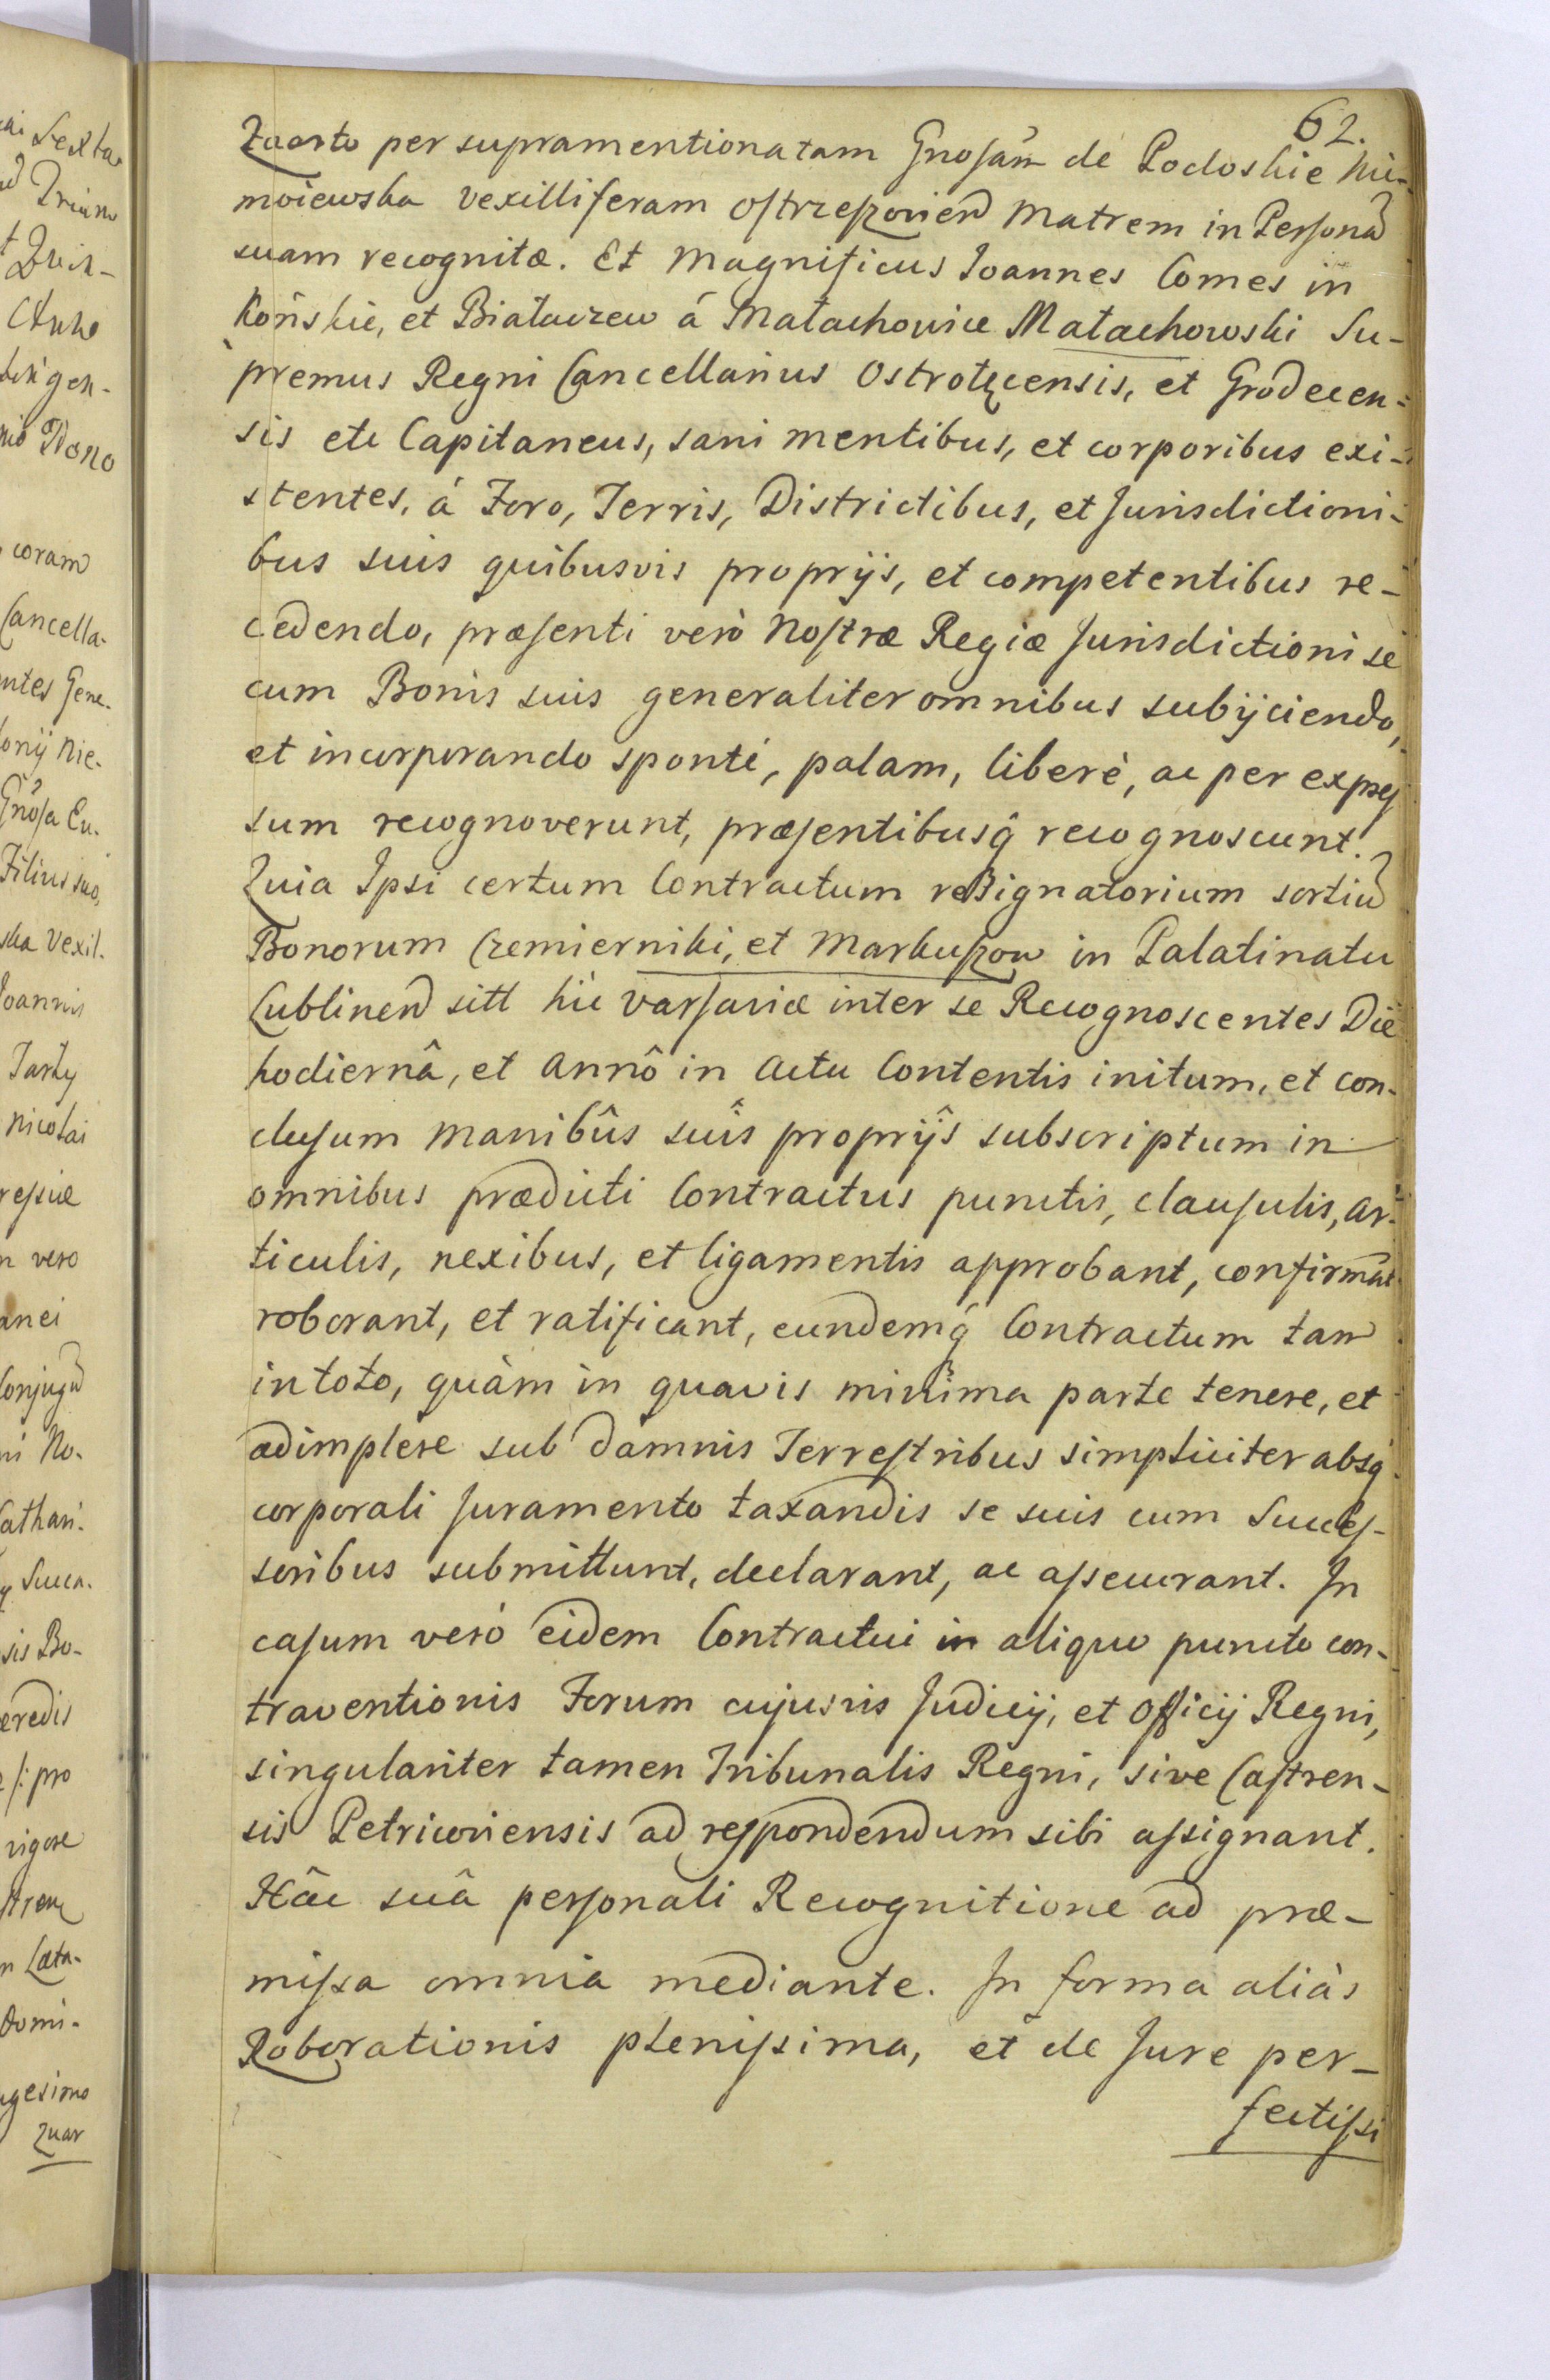 62.
Quarto per supramentionatam Gnosam de Podoskie Nie-
moiewska vexilliferam Ostrzeszovien Matrem in Personam
suam recognitæ. Et Magnificus Joannes Comes in
Końskie, et Białaczew á Małachowice Małachowski Su-
premus Regni Cancellarius Ostrołęcensis, et Grodecen-
sis etc Capitaneus, sani mentibus, et corporibus exi-
stentes, á Foro, Terris, Districtibus, et Jurisdictioni-
bus suis quibusvis proprijs, et competentibus re-
cedendo, præsenti verò Nostræ Regiæ Jurisdictioni se
cum Bonis suis generaliter omnibus subijciendo,
et incorporando sponté, palam, liberè, ac per expres
sum recognoverunt, præsentibusq́ recognoscunt.
Quia Ipsi certum Contractum reßignatorium sortium
Bonorum Czemierniki, et Markuszow in Palatinatu
Lublinen sitt hic Varsaviæ inter se Recognoscentes Die
hodiernâ, et Annô in Actu Contentis initum, et con-
clusum manibûs suîs proprijs subscriptum in
omnibus prædicti Contractus punctis, clausulis, ar-
ticulis, nexibus, et ligamentis approbant, confirmāt
roborant, et ratificant, eundemq́ Contractum tam
in toto, quàm in quavis minima parte tenere, et
adimplere sub damnis Terrestribus simpliciter absq́
corporali Juramento taxandis se suis cum Succes-
soribus submittunt, declarant, ac assecurant. In
casum verò eidem Contractui in aliquo puncto con-
traventionis Forum cujusvis Judicij, et Officij Regni,
singulariter tamen Tribunalis Regni, sive Castren-
sis Petricoviensis ad respondendum sibi assignant.
Hâc suâ personali Recognitione ad præ-
missa omnia mediante. In forma aliàs
Roborationis plenissima, et de Jure per-
fectissi